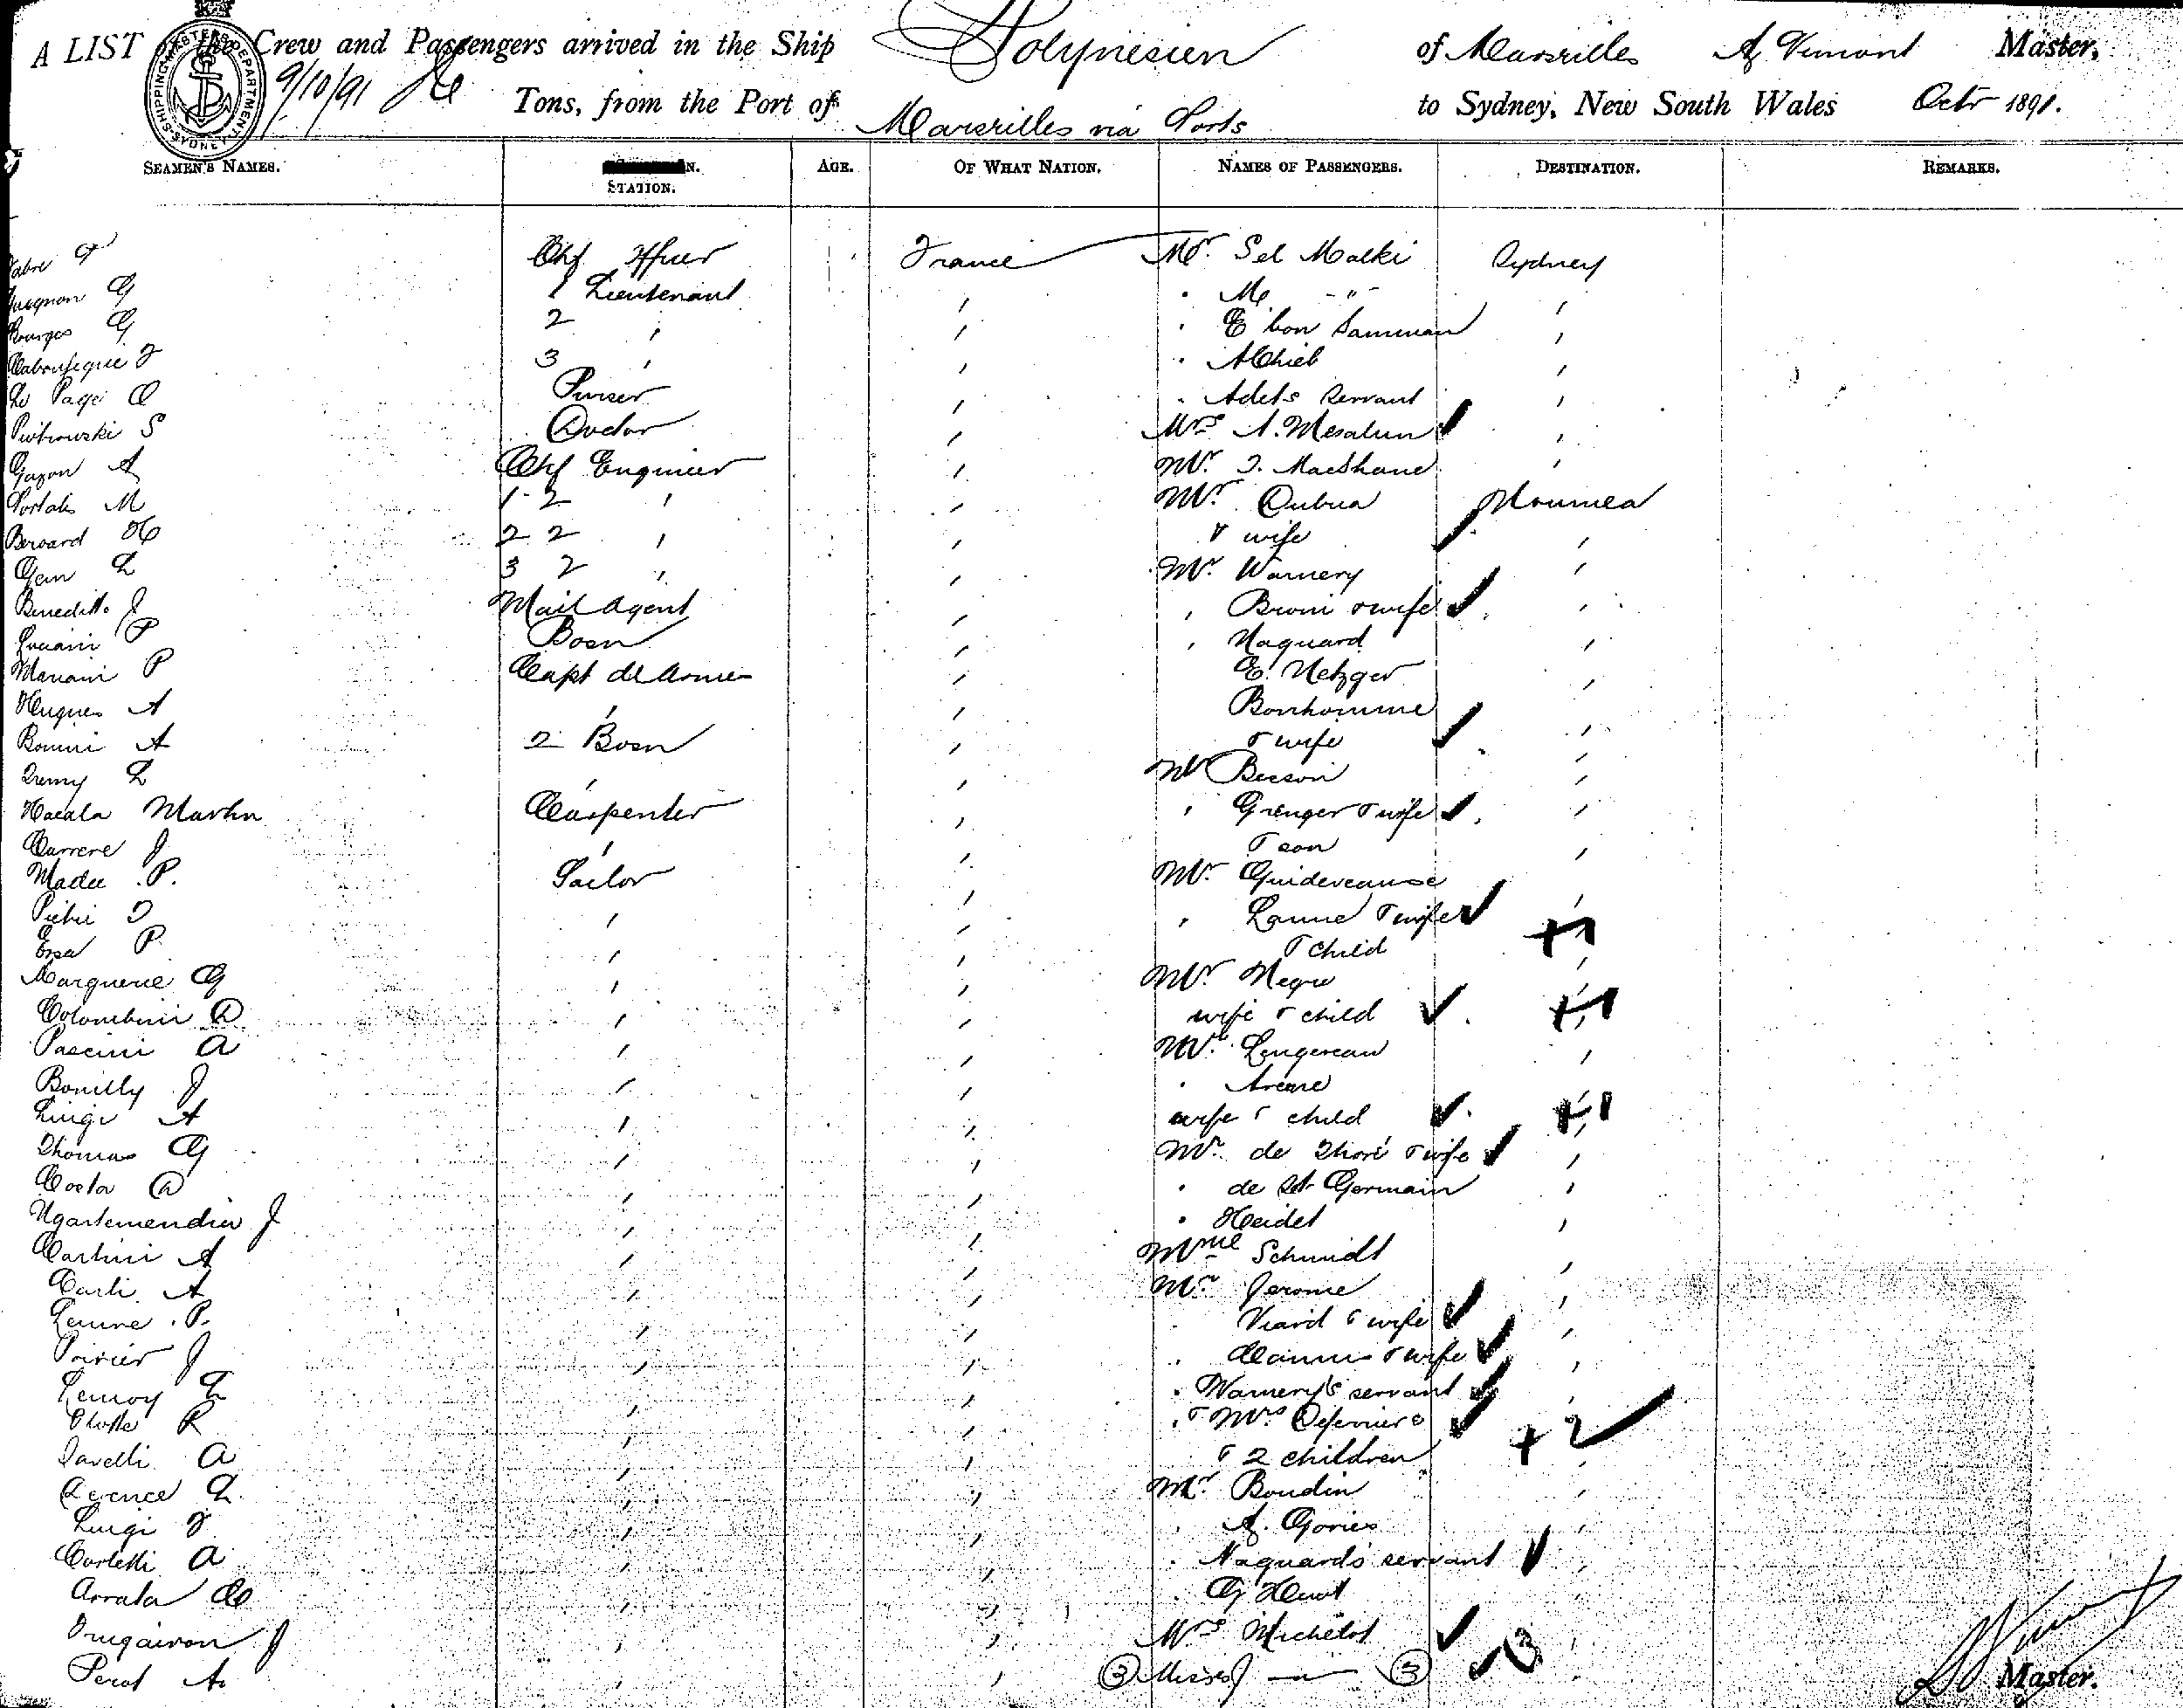 A LIST of the Crew and Passengers arrived in the Ship Polynesien of Marseilles A Vimont Master,
SHIPPING MASTER'S DEPARTMENT SYDNEY
9/10/91
Tons, from the Port of Marseilles via Ports to Sydney, New South Wales Octr 1891.
SEAMEN'S NAMES. STATION. AGE. OF WHAT NATION. NAMES OF PASSENGERS. DESTINATION. REMARKS.
Chf Officer France Mr. Sel Malki Sydney
G 1 Lieutenant " M - " -
Bourges G 2 " " E bon Samman "
3 " " "
Le Page O Purser " Adels Servant "
Piotrowski S Doctor " Mrs A. Mesalun "
Gazon A Chf Engineer " Mr. J. MacShane "
Portalis M 1 - 2 " " Mr. Dubua Noumea
Beroard H 2 2 " " & wife "
L 3 2 " " Mr. Warnery "
Beneditto J Mail Agent " " Broni & wife "
Luciani P Bosn " " Naquard "
Mariani P Capt de Armes " E. Metzger "
Hugues A " " Bonhomme
Bonini A 2 Bosn " & wife "
Remy L " " Mr Besson "
Martin Carpenter " " Grenger & wife "
Carrere J " " & son "
Madec P. Sailor " Mr. Guideveause
Pietri D " " " Laune & wife "
P " " & child +1
Marguerie G " " Mr. Negre "
Colombini D " " wife & child +1
Pascini A " " Mr. Lengereau "
Bonilly J " " " Arene
Luigi A " " wife & child +1
Thomas G " " Mr. de Thoré & wife "
Costa D " " " de St Germain "
Ugartemendia J " " " Heidet "
Carlini A " " Mme Schmidt
Carli A " " Mr. Jerome "
Lemne P. " " Viard & wife "
Poirier J " " " & wife "
Lenroy L " " " Warnery's servant "
R " " & Mrs Deferriere
Javelli A " " & 2 children +2
L. " " Mr. Boudin "
Luigi F " " " A. Gories
Corletti A " " " Naquards servant "
Arrata C " " G Huot
J " " Mrs Michelot
Perot A " " 3 Misses — " — 3 3
Vimont
Master.